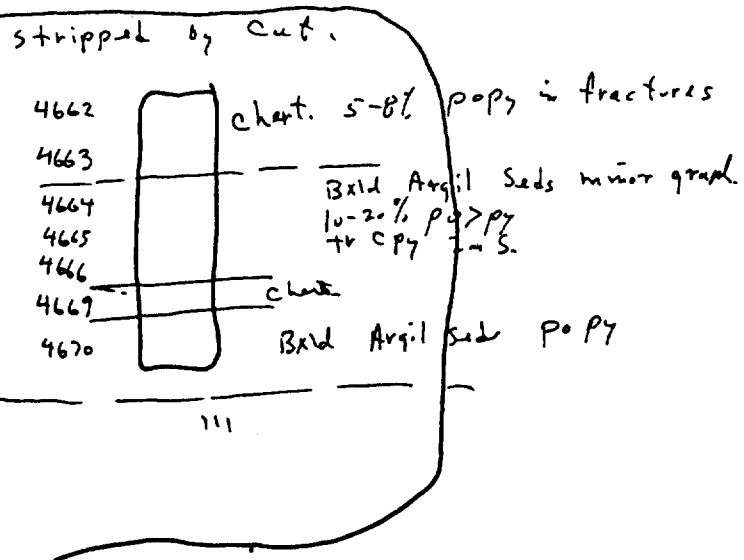 stripped by Cut.
4662 Chert. 5-8% po py in fractures
4663
Bxld Argil Seds minor graph.
4664 10-20% po>py
4665 tr Cpy
4666
4669 Chert
4670 Bxld Argil Seds po py